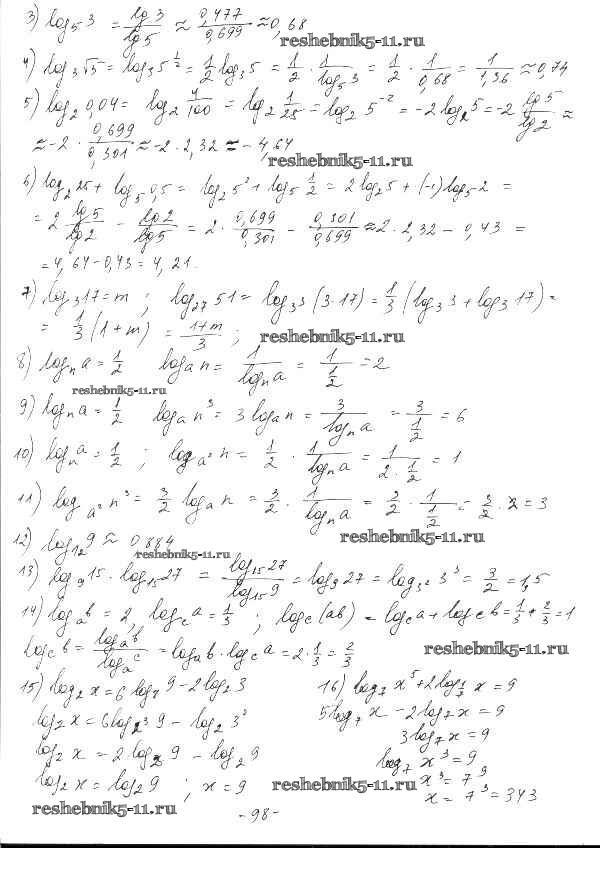 3) log₅3 = lg3/lg5 ≈ 0,477/0,699 ≈ 0,68
reshebnik5-11.ru
4) log₃√5 = log₃5^(1/2) = 1/2 log₃5 = 1/2 · 1/log₅3 = 1/2 · 1/0,68 = 1/1,36 ≈ 0,74
5) log₂0,04 = log₂ 4/100 = log₂ 1/25 = log₂5⁻² = -2log₂5 = -2 lg5/lg2 ≈
≈ -2 · 0,699/0,301 ≈ -2 · 2,32 ≈ -4,64
reshebnik5-11.ru
6) log₂25 + log₅0,5 = log₂5² + log₅ 1/2 = 2log₂5 + (-1)log₅2 =
= 2 lg5/lg2 - lg2/lg5 = 2 · 0,699/0,301 - 0,301/0,699 ≈ 2 · 2,32 - 0,43 =
= 4,64 - 0,43 = 4,21.
7) log₃17 = m ; log₂₇51 = log₃³(3·17) = 1/3(log₃3 + log₃17) =
= 1/3(1+m) = 1+m/3 ;
reshebnik5-11.ru
8) logₙa = 1/2 logₐn = 1/logₙa = 1/(1/2) = 2
reshebnik5-11.ru
9) logₙa = 1/2 logₐn³ = 3logₐn = 3/logₙa = 3/(1/2) = 6
10) logₙa = 1/2 ; logₐ²n = 1/2 · 1/logₙa = 1/(2 · 1/2) = 1
11) logₐ²n³ = 3/2 logₐn = 3/2 · 1/logₙa = 3/2 · 1/(1/2) = 3/2 · 2 = 3
reshebnik5-11.ru
12) log₁₂9 ≈ 0,884
reshebnik5-11.ru
13) log₉15 · log₁₅27 = log₁₅27/log₁₅9 = log₉27 = log₃²3³ = 3/2 = 1,5
14) logₐb = 2, log_c a = 1/3 ; log_c(ab) = log_c a + log_c b = 1/3 + 2/3 = 1
log_c b = logₐb/logₐc = logₐb · log_c a = 2 · 1/3 = 2/3
reshebnik5-11.ru
15) log₂x = 6log₈9 - 2log₂3
log₂x = 6log₂³9 - log₂3²
log₂x = 2log₂9 - log₂9
log₂x = log₂9 ; x = 9
reshebnik5-11.ru
16) log₇x⁵ + 2log_(1/7)x = 9
5log₇x - 2log₇x = 9
3log₇x = 9
log₇x³ = 9
x³ = 7⁹
x = 7³ = 343
reshebnik5-11.ru
- 98 -